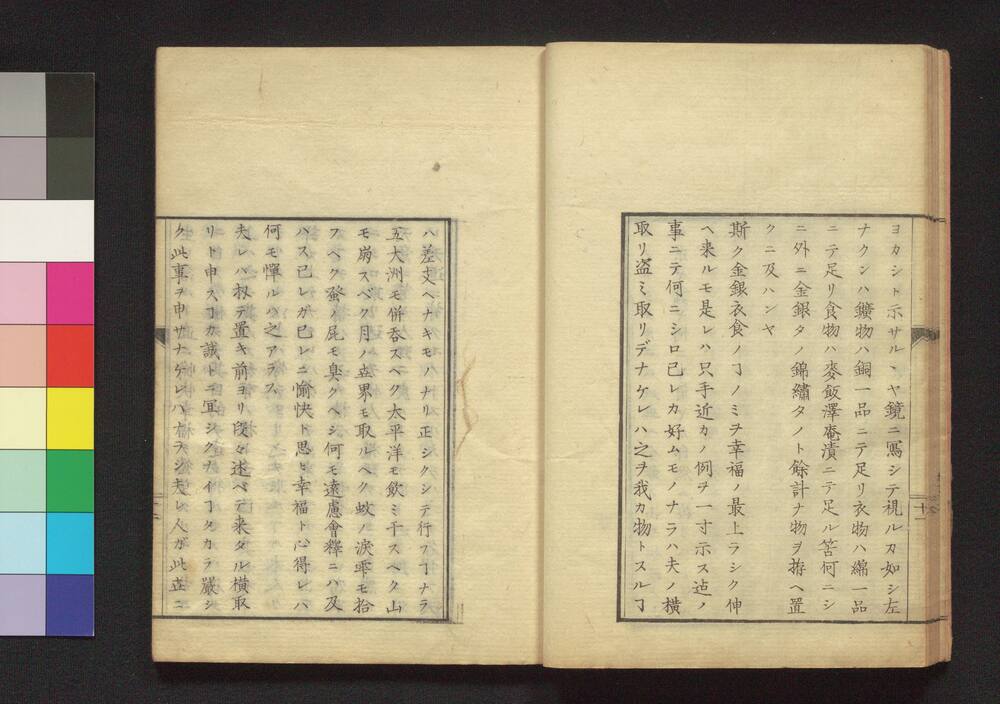 ヨカシト示サルヽヤ鏡ニ寫シテ視ルカ如シ左
ナクンハ鑛物ハ銅一品ニテ足リ衣物ハ綿一品
ニテ足リ食物ハ麥飯澤庵漬ニテ足ル筈何ニシ
ニ外ニ金銀タノ錦繡タノト餘計ナ物ヲ拵ヘ置
クニ及ハンヤ
斯ク金銀衣食ノヿノミヲ幸福ノ最上ラシク伸
ヘ来ルモ是レハ只手近カノ例ヲ一寸示ス迠ノ
事ニテ何ニシロ己レカ好ムモノナラハ夫ノ横
取リ盗ミ取リデナケレハ之ヲ我カ物トスルヿ
ハ差支ヘナキモノナリ正シクシテ行フヿナラ
五大洲モ併呑スベク太平洋モ飲ミ干スヘク山
モ崩スベク月ノ世界モ取ルヘク蚊ノ淚雫モ拾
フベク蛍ノ尾モ臭クヘシ何モ遠慮會釋ニハ及
バス己レガ己レニ愉快ト思ヒ幸福ト心得レバ
何モ憚ルハ之アラス
夫レハ扨テ置キ前ヨリ段々述ベテ来タル横取
リト申スヿカ誠ト
ク此事ヲ申サナケレハ
十一